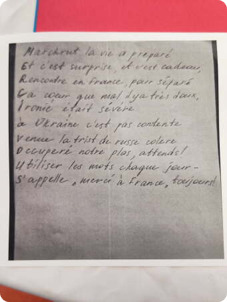 Marchrout la vie a preparé
Et c'est surprise, et c'est cadeau,
Rencontre en France, pair séparé
Ça cœur que mal il y a très deux,
Ironie était sévère
à Ukraine c'est pas contente
Venue la trist de russe colere
Occuperé notre plas, attends!
Utiliser les mots chaque jour -
S'appelle, merci à France, toujours!